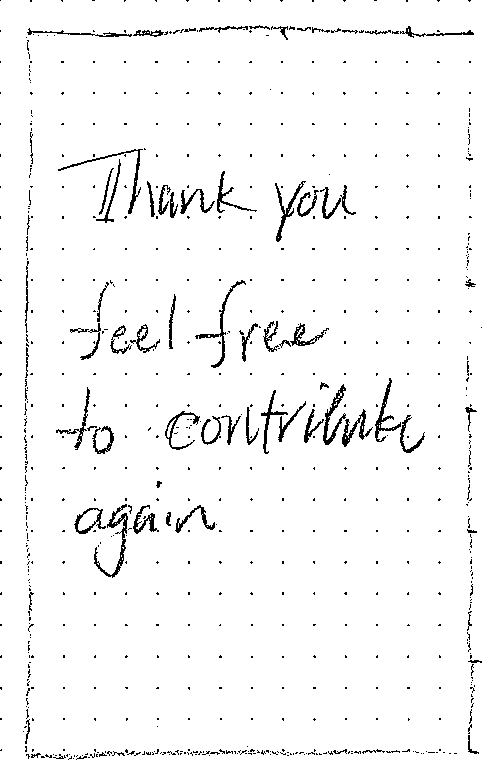 Thank you
feel free
to contribute
again